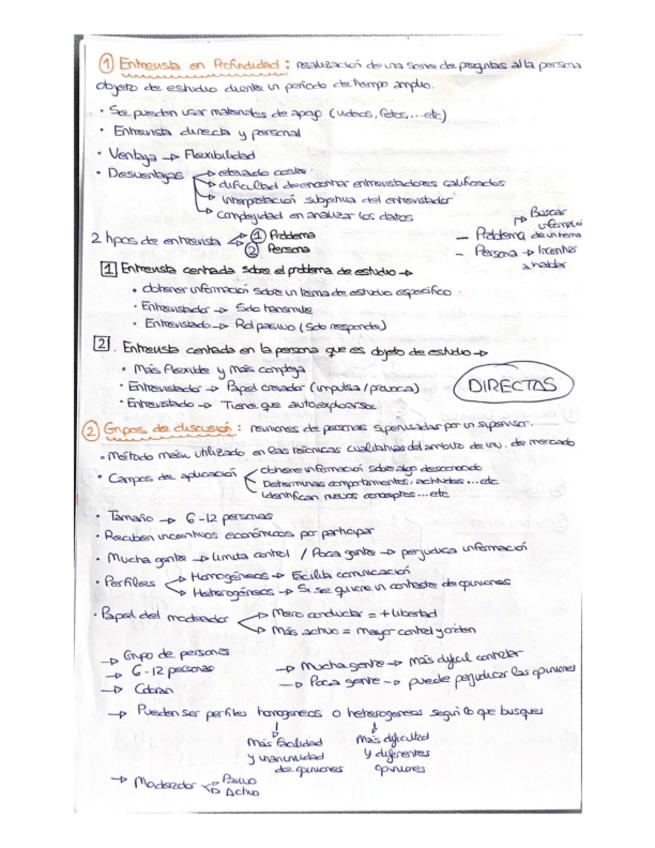 ① Entrevista en Profundidad : realización de una serie de preguntas al/la persona
objeto de estudio durante un periodo de tiempo amplio.
· Se pueden usar materiales de apoyo (videos, fotos,... etc)
· Entrevista directa y personal
· Ventaja → Flexibilidad
· Desventajas → elevado coste.
→ dificultad de encontrar entrevistadores calificados
→ interpretación subjetiva del entrevistador
→ complejidad en analizar los datos
2 tipos de entrevista → ① Problema
→ ② Persona
→ Buscar
información
— Problema de un tema
– Persona → Incentivar
a hablar
1 Entrevista centrada sobre el problema de estudio →
· Obtener información sobre un tema de estudio específico
· Entrevistador → Solo transmite
· Entrevistado → Rol pasivo (Solo responde)
2 . Entrevista centrada en la persona que es objeto de estudio →
· Más flexible y más compleja
· Entrevistador → Papel creador (impulsa / provoca)
· Entrevistado → Tiene que autoexplorarse
DIRECTAS
② Grupos de discusión : reuniones de personas supervisadas por un supervisor.
· Método más utilizado en las técnicas cualitativas del ámbito de inv. de mercado
· Campos de aplicación obtener información sobre algo desconocido
Determinas comportamientos, actitudes ... etc
Identifican nuevos conceptos ... etc
· Tamaño → 6-12 personas
· Reciben incentivos económicos por participar
· Mucha gente → Limita control / Poca gente → perjudica información
· Perfiles → Homogéneos → Facilita comunicación
→ Heterogéneos → Si se quiere un contraste de opiniones
· Papel del moderador → Mero conductor = + libertad
→ Más activo = mayor control y orden
→ Grupo de personas
→ 6-12 personas
→ Cobran
→ Mucha gente → más difícil controlar
→ Poca gente → puede perjudicar las opiniones
→ Pueden ser perfiles homogeneos o heterogeneos según lo que busques
Más facilidad
y unanimidad
de opiniones
Más dificultad
y diferentes
opiniones
→ Moderador → Pasivo
→ Activo